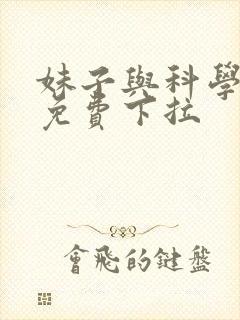 妹子與科學
免費下拉
會飛的鍵盤